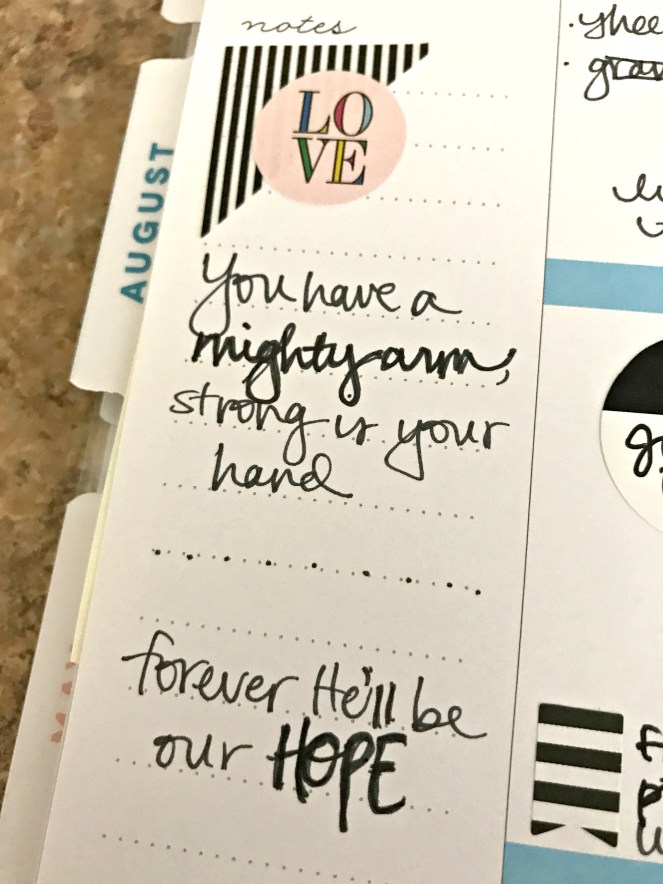 notes
LO
VE
AUGUST
You have a
mighty arm,
strong is your
hand
forever He'll be
our HOPE